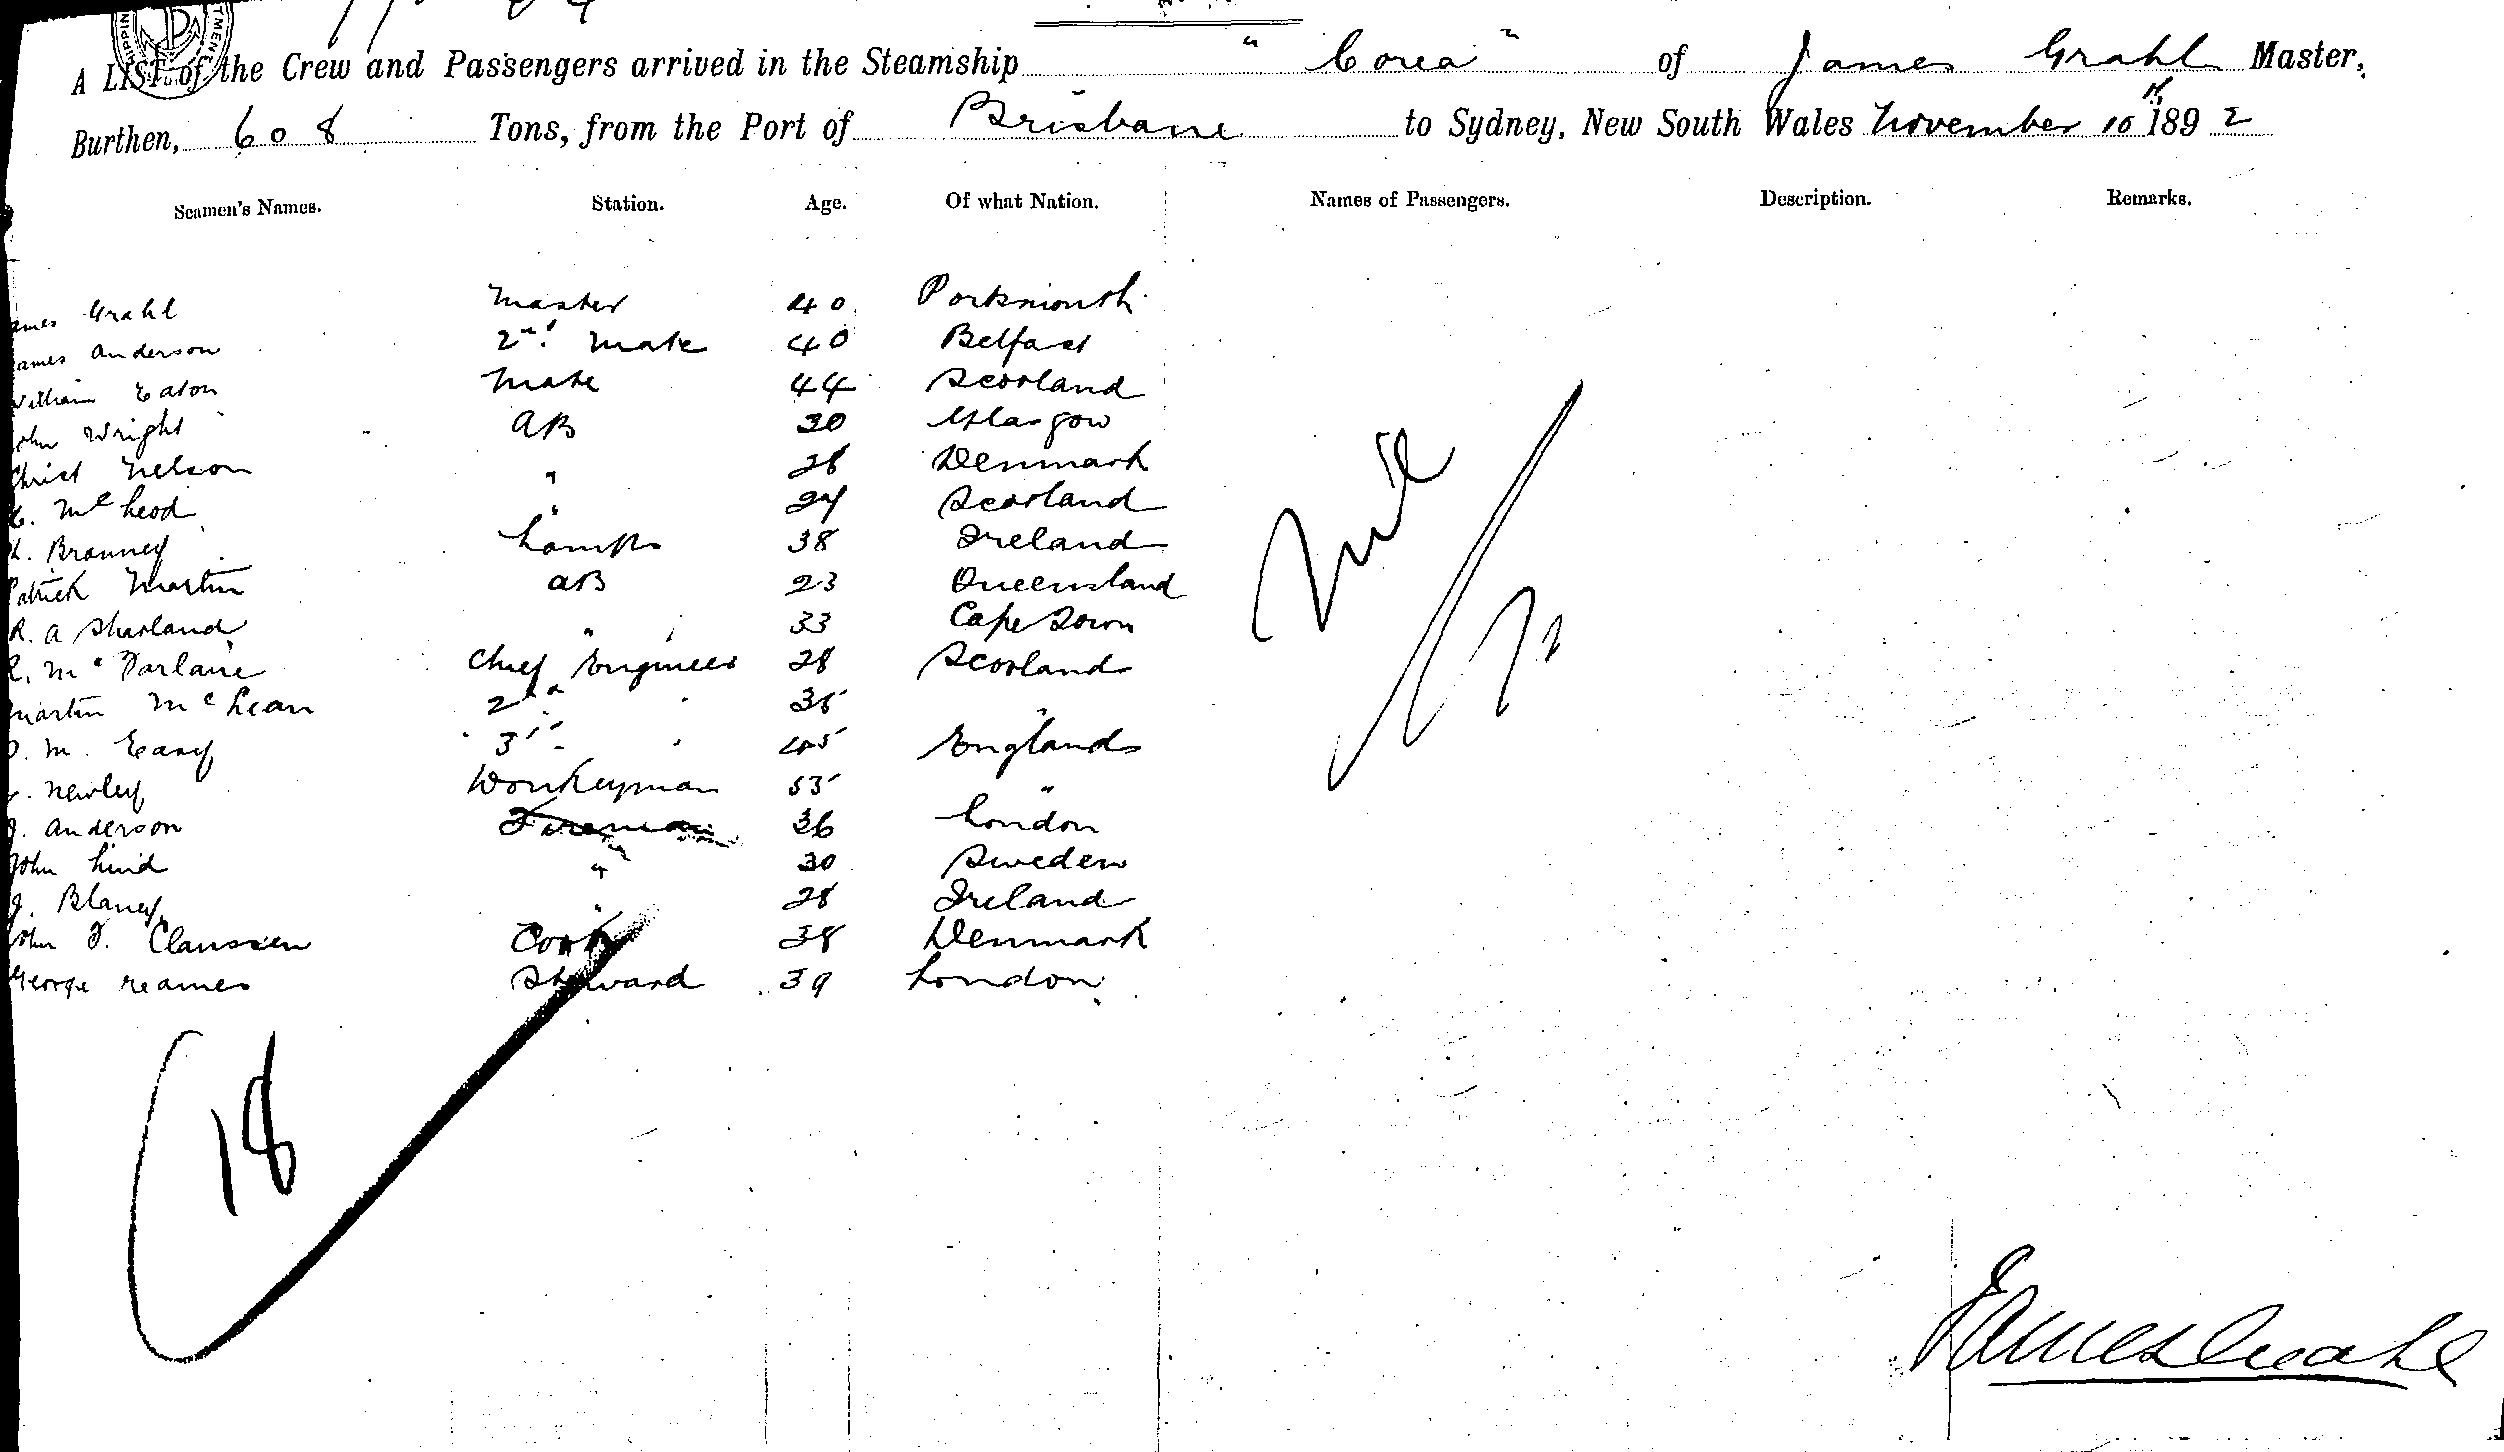 A LIST of the Crew and Passengers arrived in the Steamship "Corea" of James Grahl Master,
Burthen, 608 Tons, from the Port of Brisbane to Sydney, New South Wales November 10th 1892
Seamen's Names. Station. Age. Of what Nation. Names of Passengers. Description. Remarks.
ames Grahl Master 40 Portsmouth
ames Anderson 2nd Mate 40 Belfast
William Eaton Mate 44 Scotland
John Wright AB 30 Glasgow
Christ Nelson " 28 Denmark
McLeod " 27 Scotland
Branney Lamps 38 Ireland
Patrick Martin AB 23 Queensland
R. A Sharland " 33 Cape Town
R. McFarlane Chief Engineer 28 Scotland
Martin McLean 2nd " 35 "
M. Easy 3rd " 45 England
Newley Donkeyman 55 "
J. Anderson Fireman 36 London
John Lind " 30 Sweden
J. Blaney " 28 Ireland
John F. Claussen Cook 38 Denmark
George Reames Steward 39 London
Nil
18
James Grahl